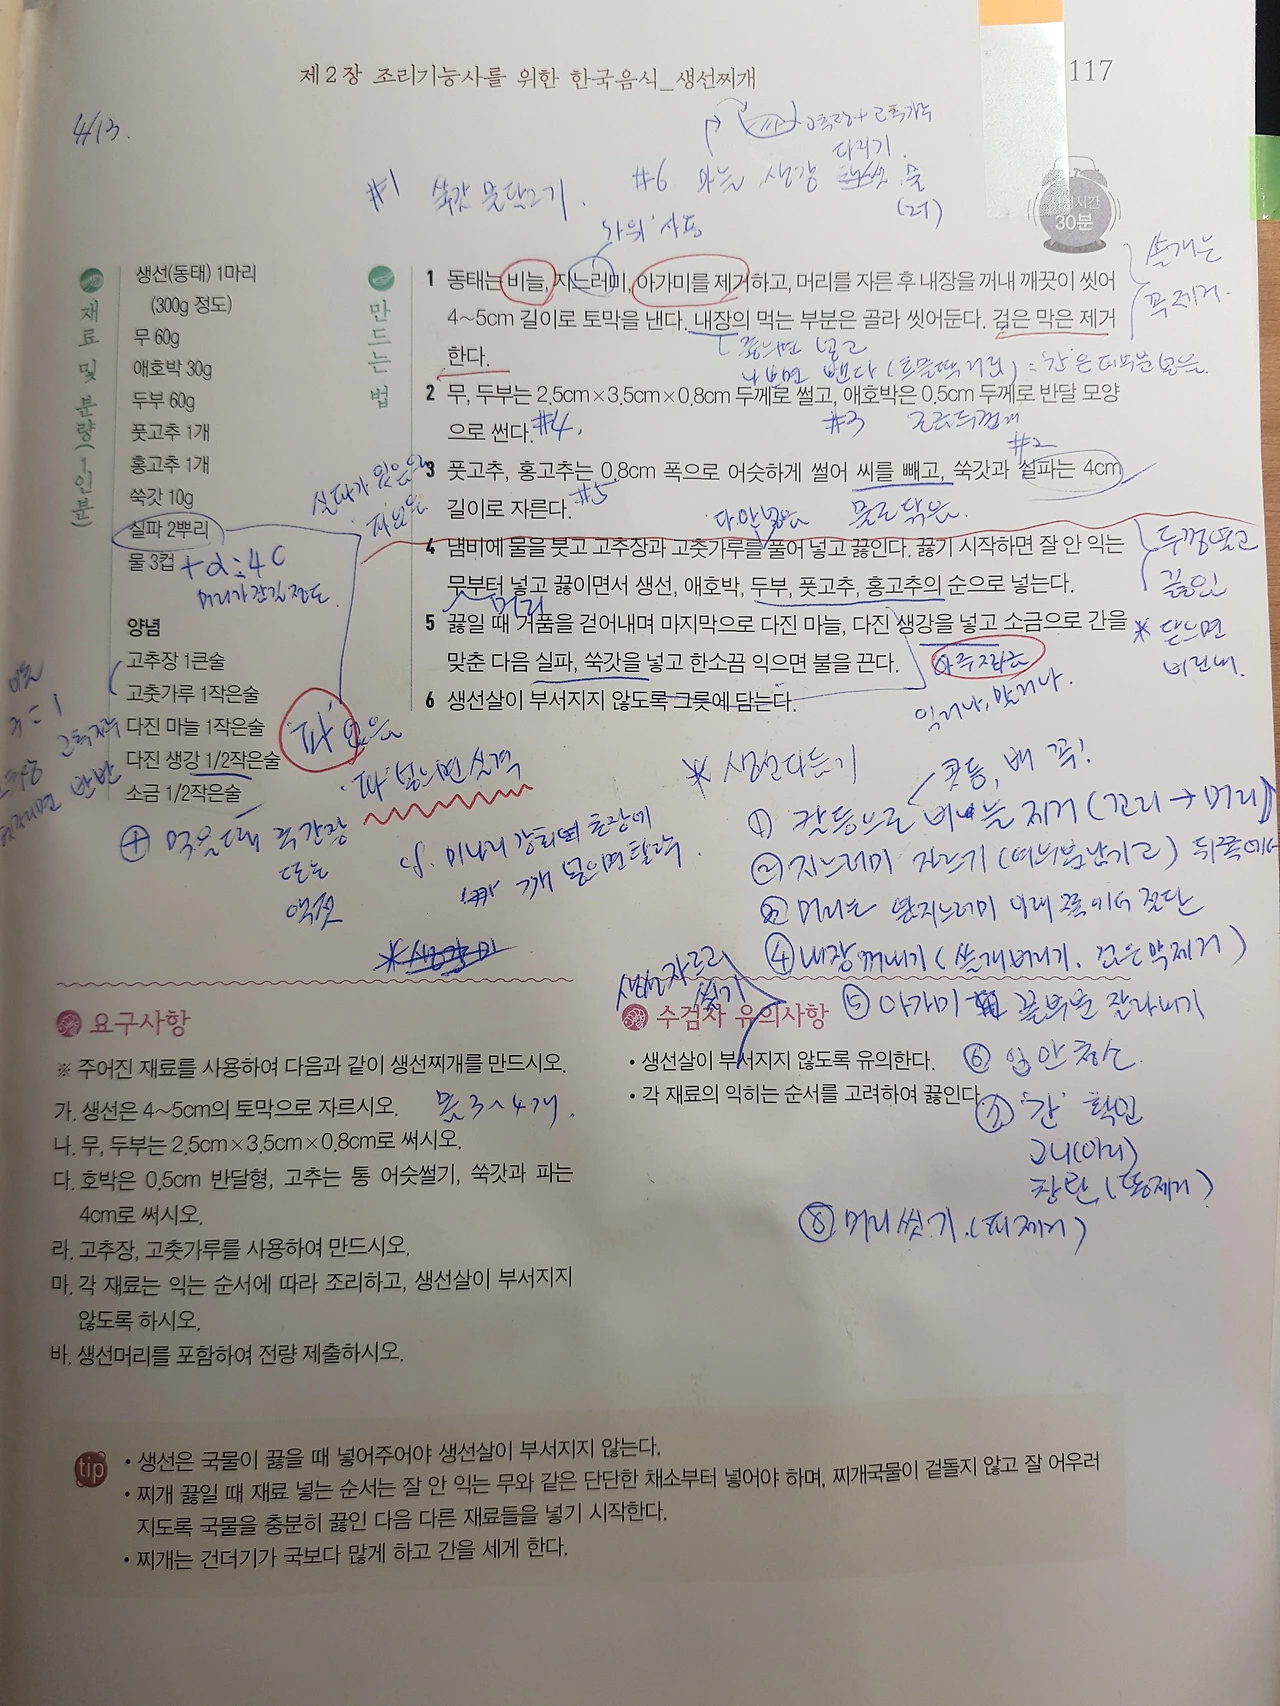 제2장 조리기능사를 위한 한국음식_생선찌개
117
4/13.
#1 쑥갓 물담그기.
#6 마늘 생강
다리기.
가위 사용
시험시간
30분
재료 및 분량(1인분)
생선(동태) 1마리
(300g 정도)
무 60g
애호박 30g
두부 60g
풋고추 1개
홍고추 1개
쑥갓 10g
실파 2뿌리
물 3컵 +α=4C
머리가 잠길 정도.
양념
고추장 1큰술
고춧가루 1작은술
다진 마늘 1작은술
다진 생강 1/2작은술
소금 1/2작은술
반반
⊕ 먹을때 국간장
또는
액젓
만드는 법
1 동태는 비늘, 지느러미, 아가미를 제거하고, 머리를 자른 후 내장을 꺼내 깨끗이 씻어
4~5cm 길이로 토막을 낸다. 내장의 먹는 부분은 골라 씻어둔다. 검은 막은 제거
한다.
쓸개는
꼭 제거.
있으면 넣고
2 무, 두부는 2.5cm×3.5cm×0.8cm 두께로 썰고, 애호박은 0.5cm 두께로 반달 모양
으로 썬다. #4.
#3
#2
3 풋고추, 홍고추는 0.8cm 폭으로 어슷하게 썰어 씨를 빼고, 쑥갓과 실파는 4cm
길이로 자른다. #5
실파가 있을
다 안넣음
물로 닦음.
4 냄비에 물을 붓고 고추장과 고춧가루를 풀어 넣고 끓인다. 끓기 시작하면 잘 안 익는
무부터 넣고 끓이면서 생선, 애호박, 두부, 풋고추, 홍고추의 순으로 넣는다.
머리
뚜껑 열고
끓임
* 닫으면
비린내.
5 끓일 때 거품을 걷어내며 마지막으로 다진 마늘, 다진 생강을 넣고 소금으로 간을
맞춘 다음 실파, 쑥갓을 넣고 한소끔 익으면 불을 끈다.
아주 조금
6 생선살이 부서지지 않도록 그릇에 담는다.
'파' 없음
'파' 넣으면 실격
* 생선다듬기
콧등, 배 꼭!
① 칼등으로 비늘 제거 (꼬리 → 머리)
② 지느러미 자르기 (여분남기고) 뒤쪽에서
③ 머리는 옆지느러미 아래 쪽에서 절단
④ 내장꺼내기 (쓸개버리기. 검은막제거)
생선자르고
씻기
⑤ 아가미 끝부분 잘라내기
⑥ 입안 청소
⑦ '간' 확인
고니(이리)
창란 (똥제거)
⑧ 머리씻기. (피제거)
요구사항
※ 주어진 재료를 사용하여 다음과 같이 생선찌개를 만드시오.
가. 생선은 4~5cm의 토막으로 자르시오. 몸 3~4개.
나. 무, 두부는 2.5cm×3.5cm×0.8cm로 써시오.
다. 호박은 0.5cm 반달형, 고추는 통 어슷썰기, 쑥갓과 파는
4cm로 써시오.
라. 고추장, 고춧가루를 사용하여 만드시오.
마. 각 재료는 익는 순서에 따라 조리하고, 생선살이 부서지지
않도록 하시오.
바. 생선머리를 포함하여 전량 제출하시오.
수검자 유의사항
• 생선살이 부서지지 않도록 유의한다.
• 각 재료의 익히는 순서를 고려하여 끓인다.
tip
• 생선은 국물이 끓을 때 넣어주어야 생선살이 부서지지 않는다.
• 찌개 끓일 때 재료 넣는 순서는 잘 안 익는 무와 같은 단단한 채소부터 넣어야 하며, 찌개국물이 겉돌지 않고 잘 어우러
지도록 국물을 충분히 끓인 다음 다른 재료들을 넣기 시작한다.
• 찌개는 건더기가 국보다 많게 하고 간을 세게 한다.